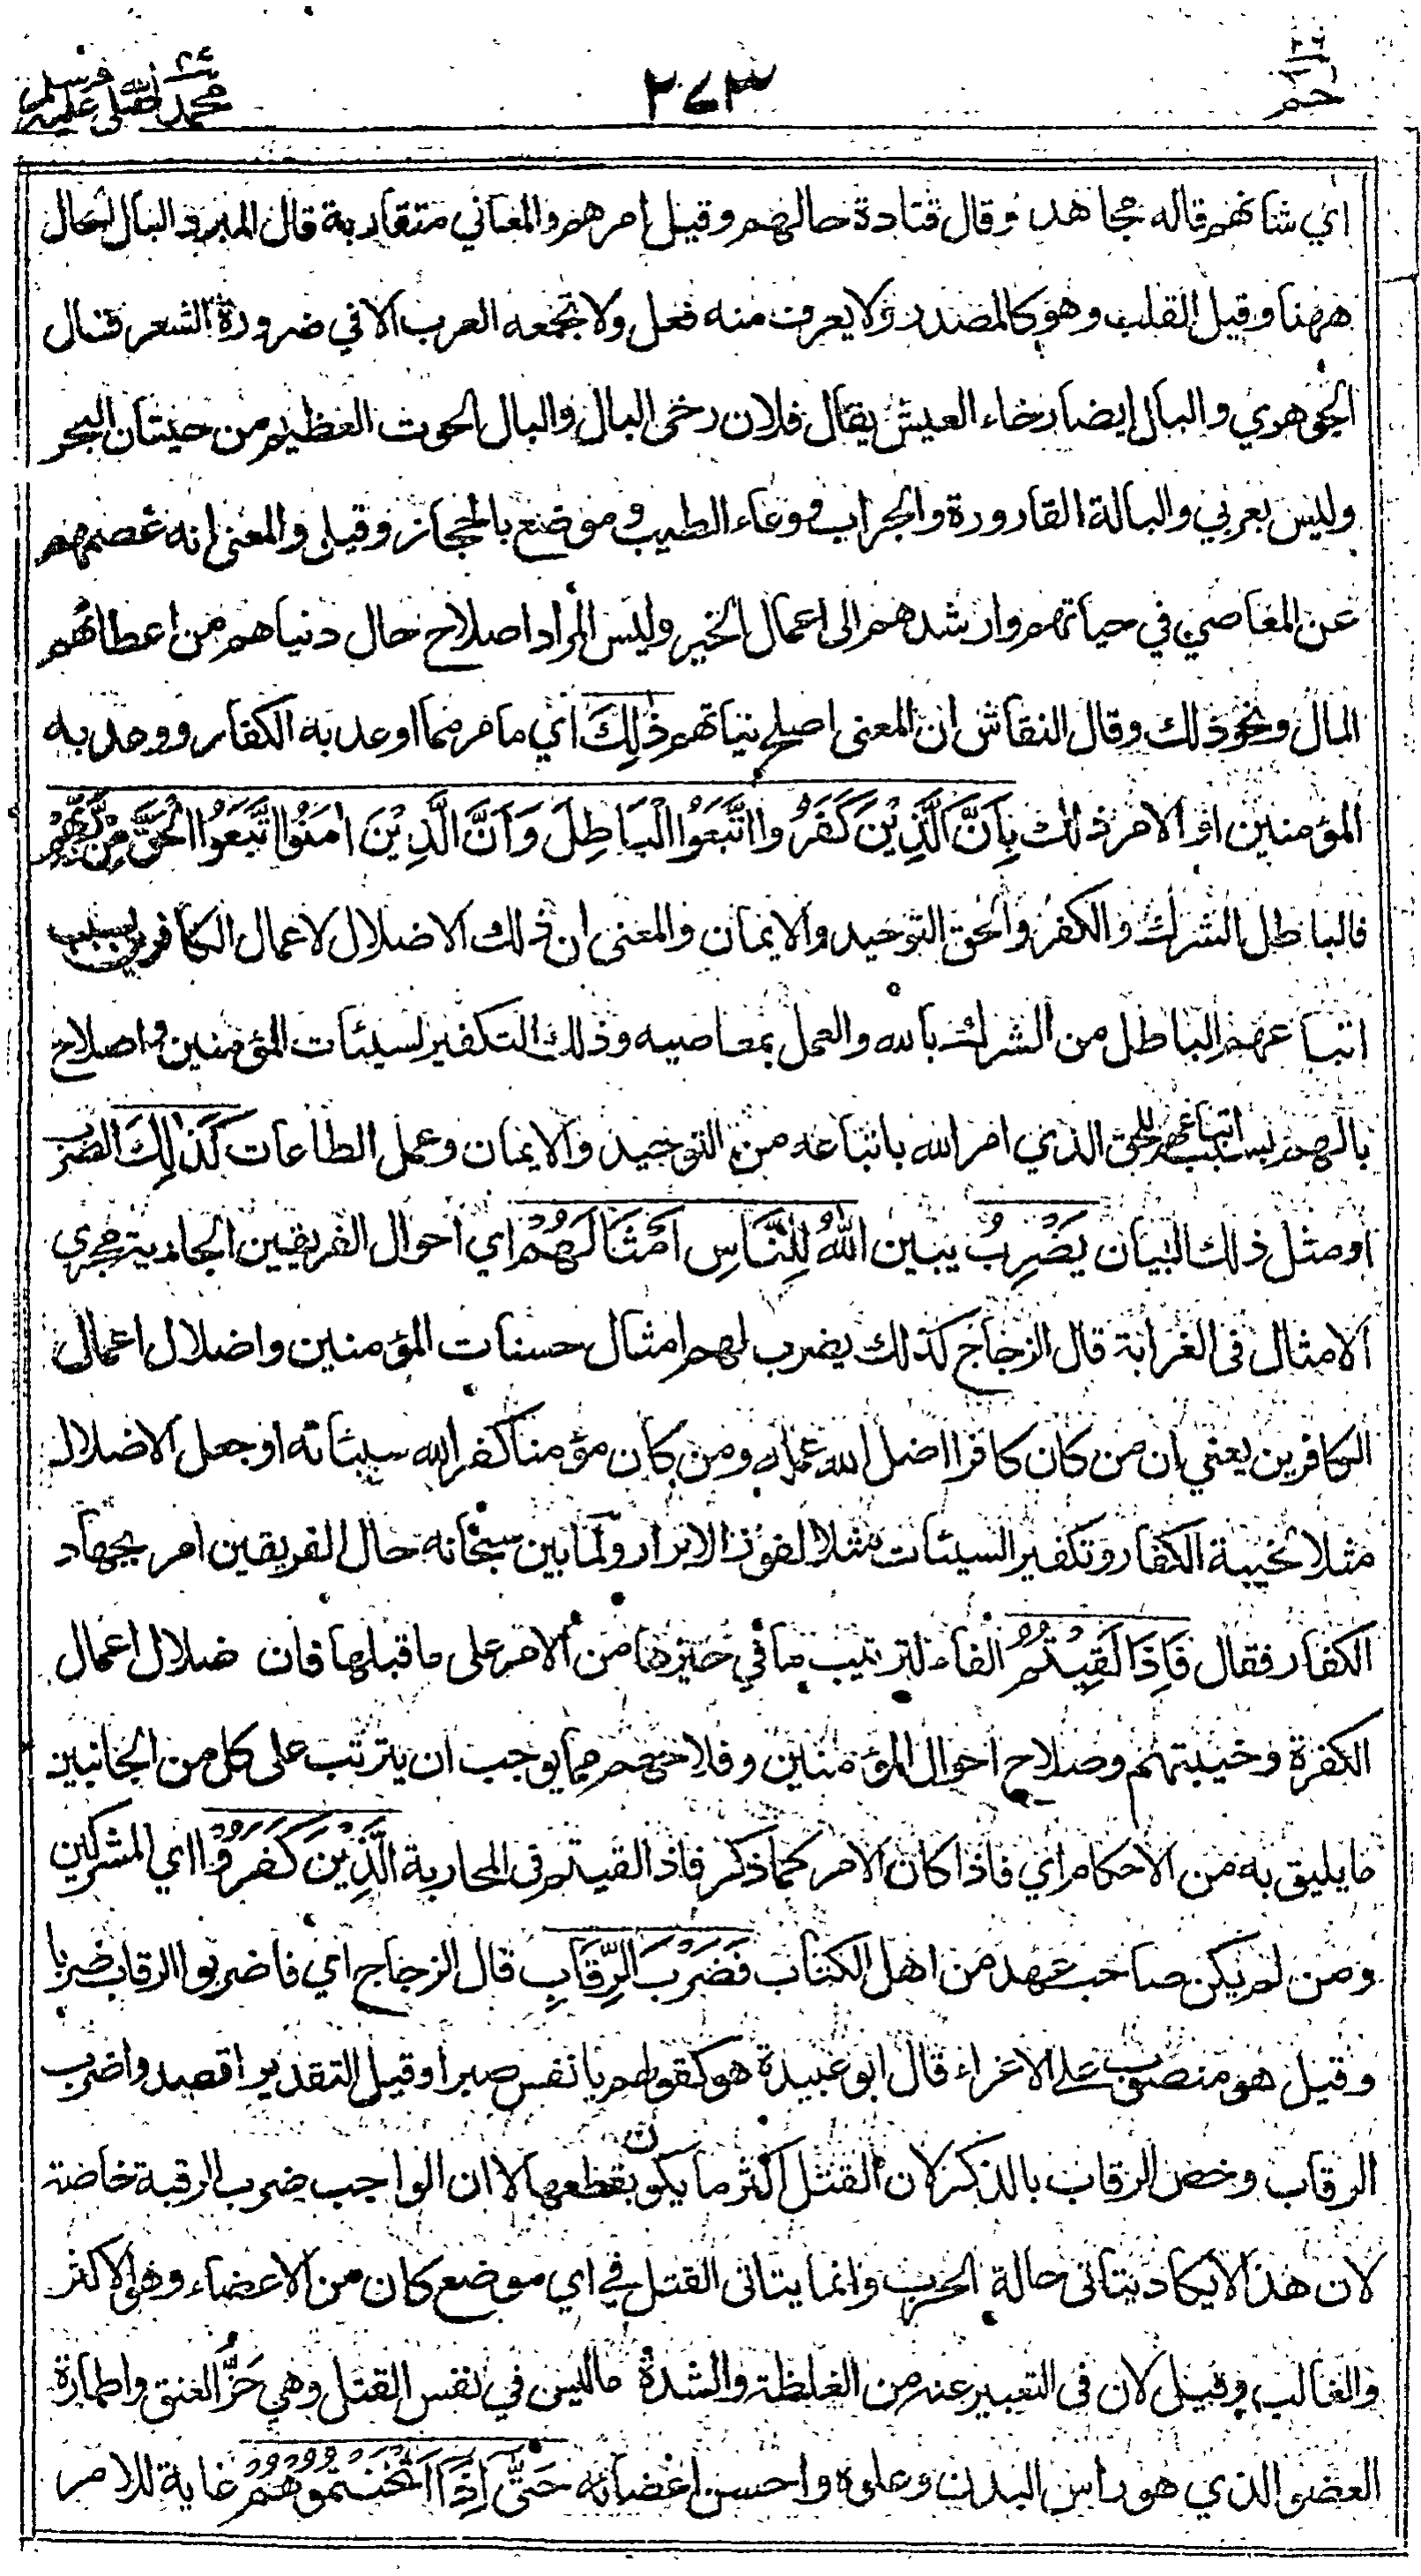 حم ٢٦
٢٧٣
محمد صلى الله عليه وسلم
اي شانهم قاله مجاهد وقال قتادة حالهم وقيل امرهم والمعاني متقاربة قال المبرد البال الحال
ههنا وقيل القلب وهو كالمصدر ولا يعرف منه فعل ولا تجمعه العرب الا في ضرورة الشعر قال
الجوهري والبال ايضا رخاء العيش يقال فلان رخى البال والبال الحوت العظيم من حيتان البحر
وليس بعربي والبالة القارورة والجراب و وعاء الطيب و موضع بالحجاز وقيل والمعنى انه عصمهم
عن المعاصي في حياتهم وارشدهم الى اعمال الخير وليس المراد اصلاح حال دنياهم من اعطائهم
المال ونحو ذلك وقال النقاش ان المعنى اصلح نياتهم ذٰلِكَ اي ما مر مما اوعد به الكفار ووعد به
المؤمنين او الامر ذلك بِاَنَّ الَّذِيْنَ كَفَرُوا اتَّبَعُوا الْبَاطِلَ وَاَنَّ الَّذِيْنَ اٰمَنُوا اتَّبَعُوا الْحَقَّ مِنْ رَّبِّهِمْ
فالباطل الشرك والكفر والحق التوحيد والايمان والمعنى ان ذلك الاضلال لاعمال الكافرين بسبب
اتباعهم الباطل من الشرك بالله والعمل بمعاصيه وذلك التكفير لسيئات المؤمنين و اصلاح
بالهم بسبب اتباعهم للحق الذي امر الله باتباعه من التوحيد والايمان وعمل الطاعات كَذٰلِكَ الضرب
او مثل ذلك البيان يَضْرِبُ يبين اللّٰهُ لِلنَّاسِ اَمْثَالَهُمْ اي احوال الفريقين الجارية مجرى
الامثال فى الغرابة قال الزجاج كذلك يضرب لهم امثال حسنات المؤمنين واضلال اعمال
الكافرين يعني ان من كان كافرا اضل الله عمله ومن كان مؤمنا كفر الله سيئاته او جعل الاضلال
مثلا لخيبة الكفار وتكفير السيئات مثلا لفوز الابرار ولما بين سبحانه حال الفريقين امر بجهاد
الكفار فقال فَاِذَا لَقِيْتُمُ الفاء لترتيب ما في حيزها من الامر على ما قبلها فان ضلال اعمال
الكفرة وخيبتهم وصلاح احوال المؤمنين وفلاحهم مما يوجب ان يترتب على كل من الجانبين
ما يليق به من الاحكام اي فاذا كان الامر كما ذكر فاذا لقيتم فى المحاربة الَّذِيْنَ كَفَرُوْا اي المشركين
ومن لم يكن صاحب عهد من اهل الكتاب فَضَرْبَ الرِّقَابِ قال الزجاج اي فاضربوا الرقاب ضربا
وقيل هو منصوب على الاغراء قال ابو عبيدة هو كقولهم يا نفس صبرا وقيل التقدير اقصدوا ضرب
الرقاب وخص الرقاب بالذكر لان القتل اكثر ما يكون بقطعها لا ان الواجب ضرب الرقبة خاصة
لان هذا لا يكاد يتاتى حالة الحرب وانما يتاتى القتل في اي موضع كان من الاعضاء وهو الاكثر
والغالب وقيل لان فى التعبير عنه من الغلظة والشدة ما ليس في نفس القتل وهي حَزُّ العنق واطارة
العضو الذي هو راس البدن وعلوه واحسن اعضائه حَتّٰى اِذَا اَثْخَنْتُمُوْهُمْ غاية للامر